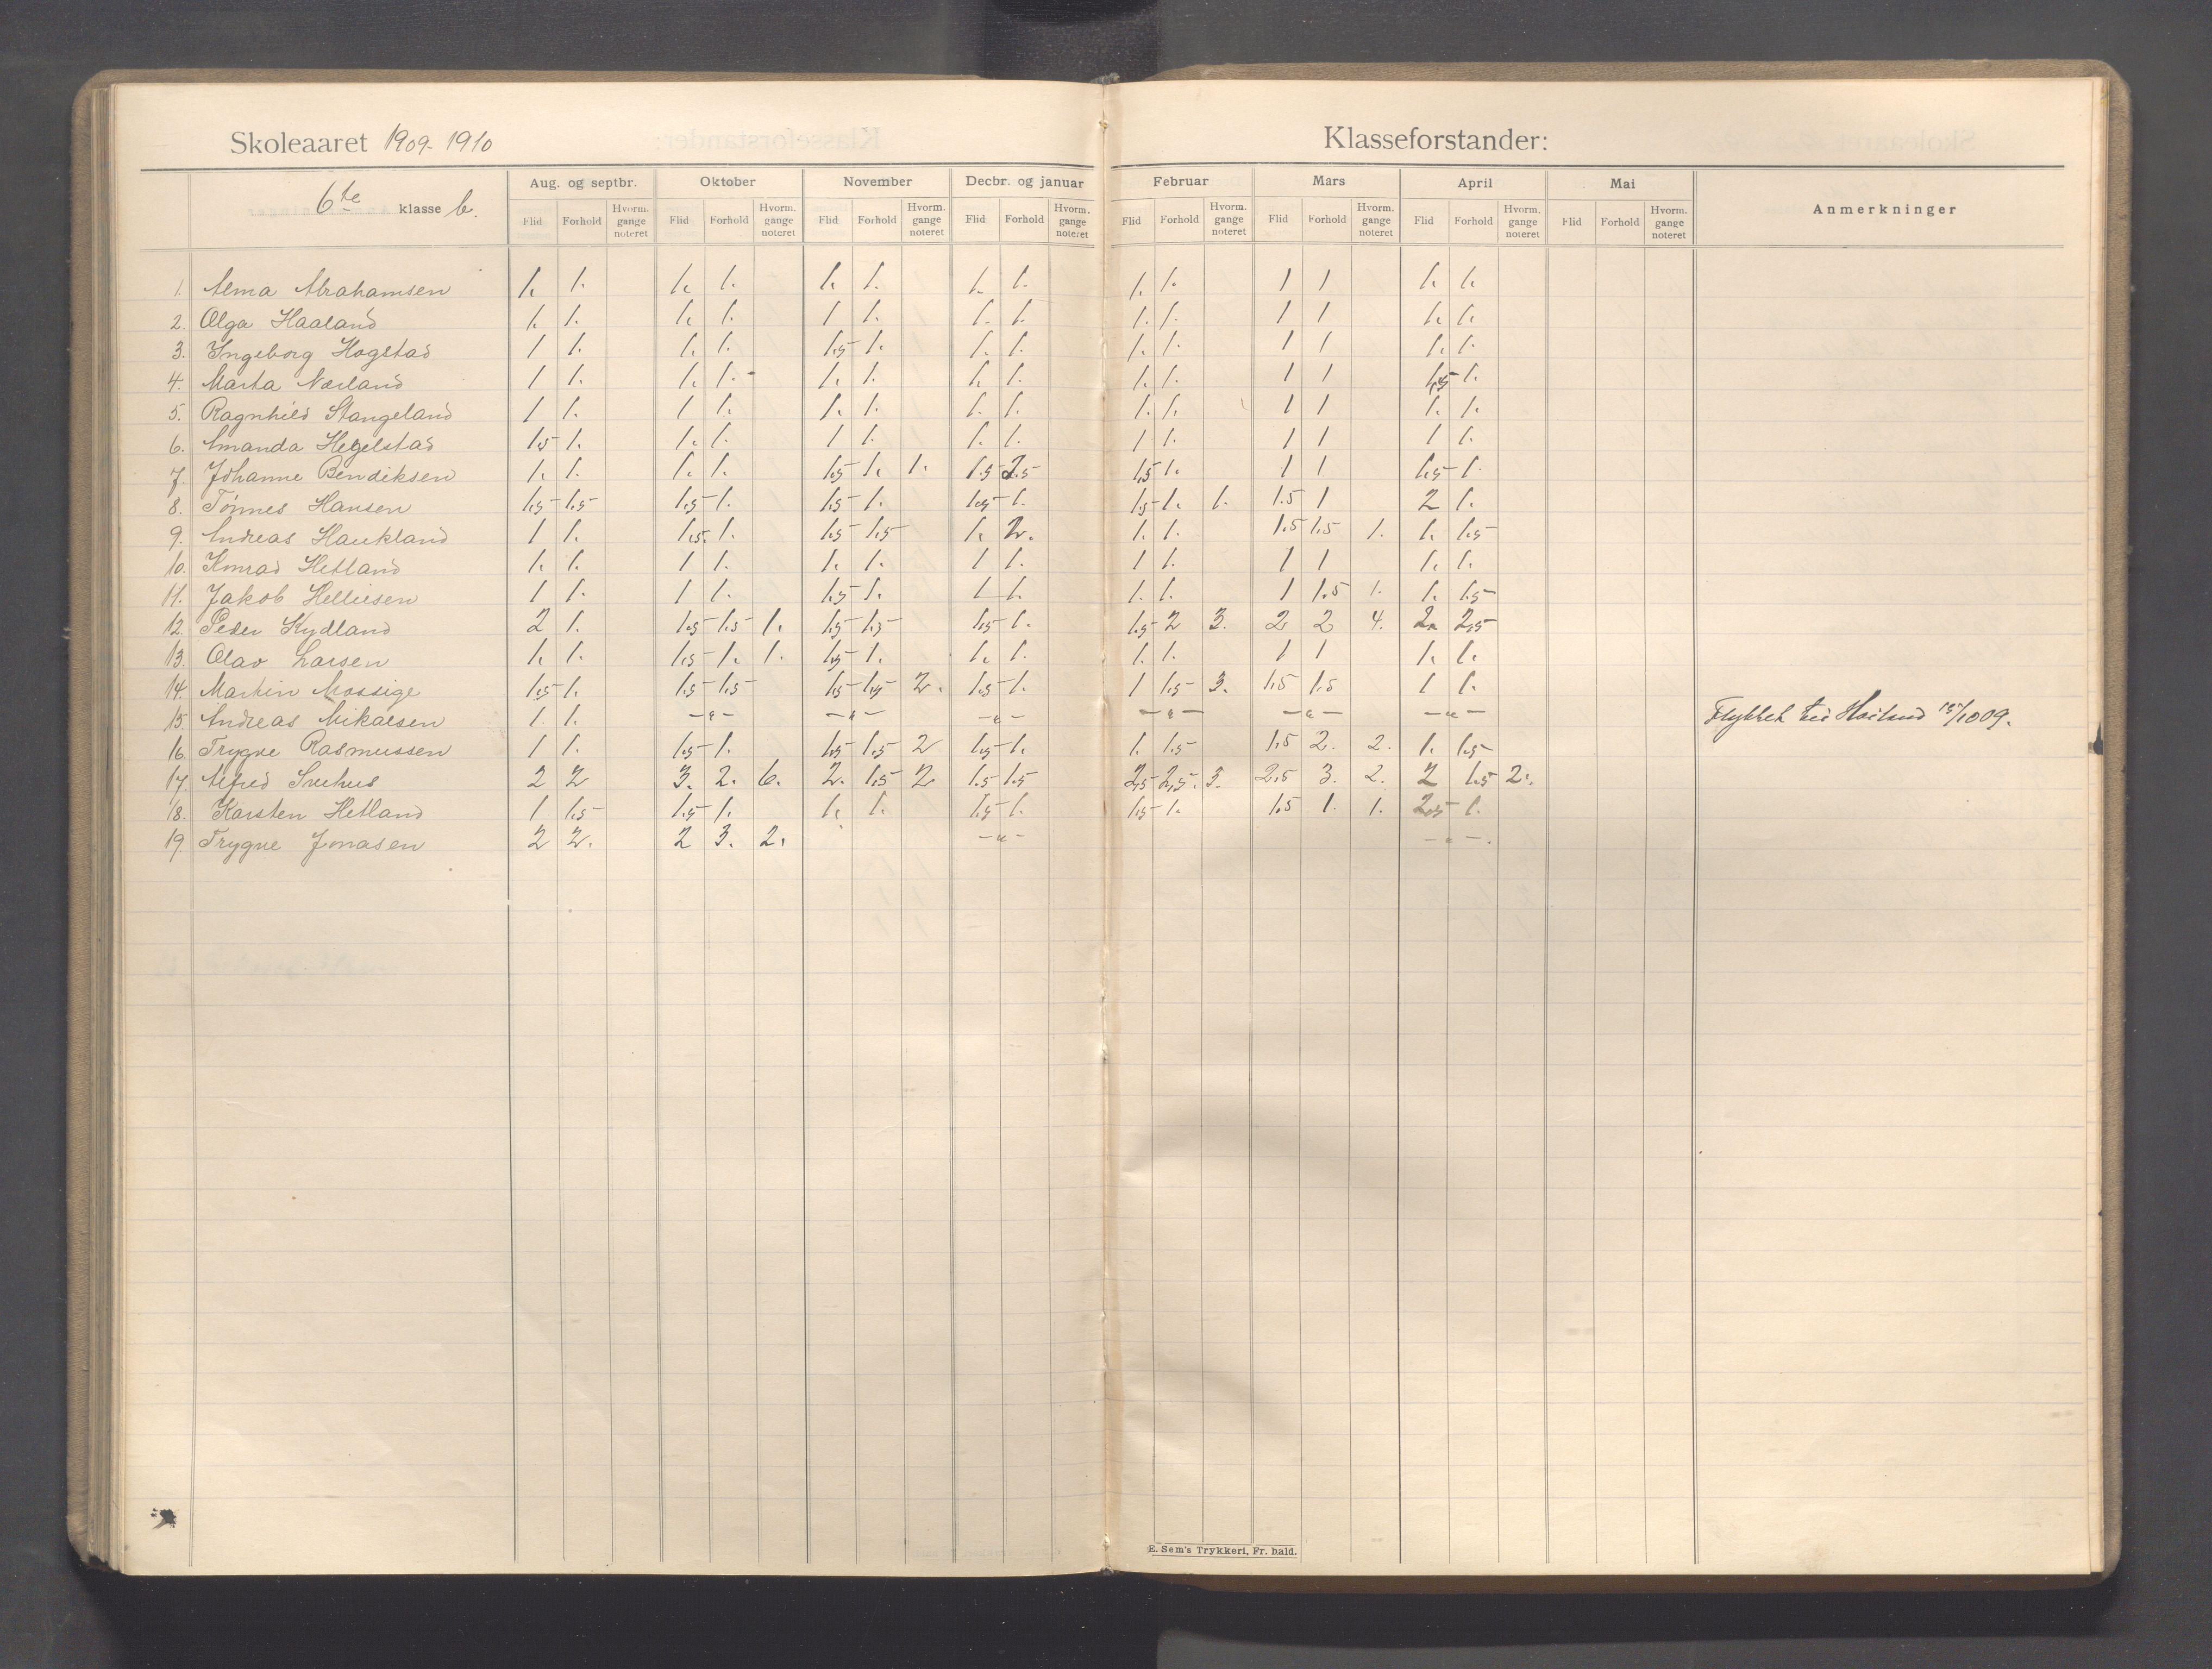 Skoleaaret 1909-1910 Klasseforstander:
6te klasse b. Aug. og septbr. Oktober November Decbr. og januar Februar Mars April Mai Anmerkninger
Flid Forhold Hvorm. gange noteret Flid Forhold Hvorm. gange noteret Flid Forhold Hvorm. gange noteret Flid Forhold Hvorm. gange noteret Flid Forhold Hvorm. gange noteret Flid Forhold Hvorm. gange noteret Flid Forhold Hvorm. gange noteret Flid Forhold Hvorm. gange noteret
1. Alma Abrahamsen 1. 1. 1. 1. 1. 1. 1. 1. 1. 1. 1 1 1. 1.
2. Olga Haaland 1. 1. 1. 1. 1 1. 1. 1. 1. 1. 1 1 1. 1.
3. Ingeborg Hogstad 1 1. 1. 1. 1.5 1. 1. 1. 1. 1. 1 1 1. 1.
4. Marta Nærland 1 1. 1. 1. 1. 1. 1. 1. 1. 1. 1 1 1.5 1.
5. Ragnhild Stangeland 1 1. 1 1. 1. 1. 1. 1. 1. 1. 1 1 1. 1.
6. Amanda Hegelstad 1.5 1. 1. 1. 1 1. 1. 1. 1 1. 1 1 1 1.
7. Johanne Bendiksen 1. 1. 1. 1. 1.5 1. 1. 1.5 2.5 1.5 1. 1 1 1.5 1.
8. Tønnes Hansen 1.5 1.5 1.5 1. 1.5 1. 1.5 1. 1.5 1. 1. 1.5 1 2 1.
9. Andreas Haukland 1 1. 1.5. 1. 1.5 1.5 1. 2. 1. 1. 1.5 1.5 1. 1. 1.5
10. Konrad Hetland 1. 1. 1 1. 1. 1. 1 1. 1 1. 1 1 1. 1.
11. Jakob Helliesen 1 1. 1 1. 1.5 1. 1 1. 1. 1. 1 1.5 1. 1. 1.5
12. Peder Kydland 2 1. 1.5 1.5 1. 1.5 1.5 1.5 1. 1.5 2 3. 2 2 4. 2. 2.5
13. Olav Larsen 1. 1. 1.5 1. 1. 1.5 1. 1. 1. 1. 1. 1 1 1. 1.
14. Martin Mossige 1.5 1. 1.5 1.5 1.5 1.5 2. 1.5 1. 1 1.5 3. 1.5 1.5 1 1.
15. Andreas Mikalsen 1. 1. -"- -"- -"- -"- -"- -"- Flyttet til 15/10 09.
16. Trygve Rasmussen 1 1. 1.5 1. 1.5 1.5 2 1.5 1. 1. 1.5 1.5 2. 2. 1. 1.5
17. Alfred 2 2 3. 2. 6. 2. 1.5 2 1.5 1.5 2.5 2.5. 3. 2.5 3. 2. 2 1.5 2.
18. Karsten Hetland 1 1.5 1.5 1. 1. 1. 1.5 1. 1.5 1. 1.5 1. 1. 2.5 1.
19. Trygve Jonasen 2 2. 2 3. 2. -"- -"-.
E. Sem's Trykkeri, Fr. hald.